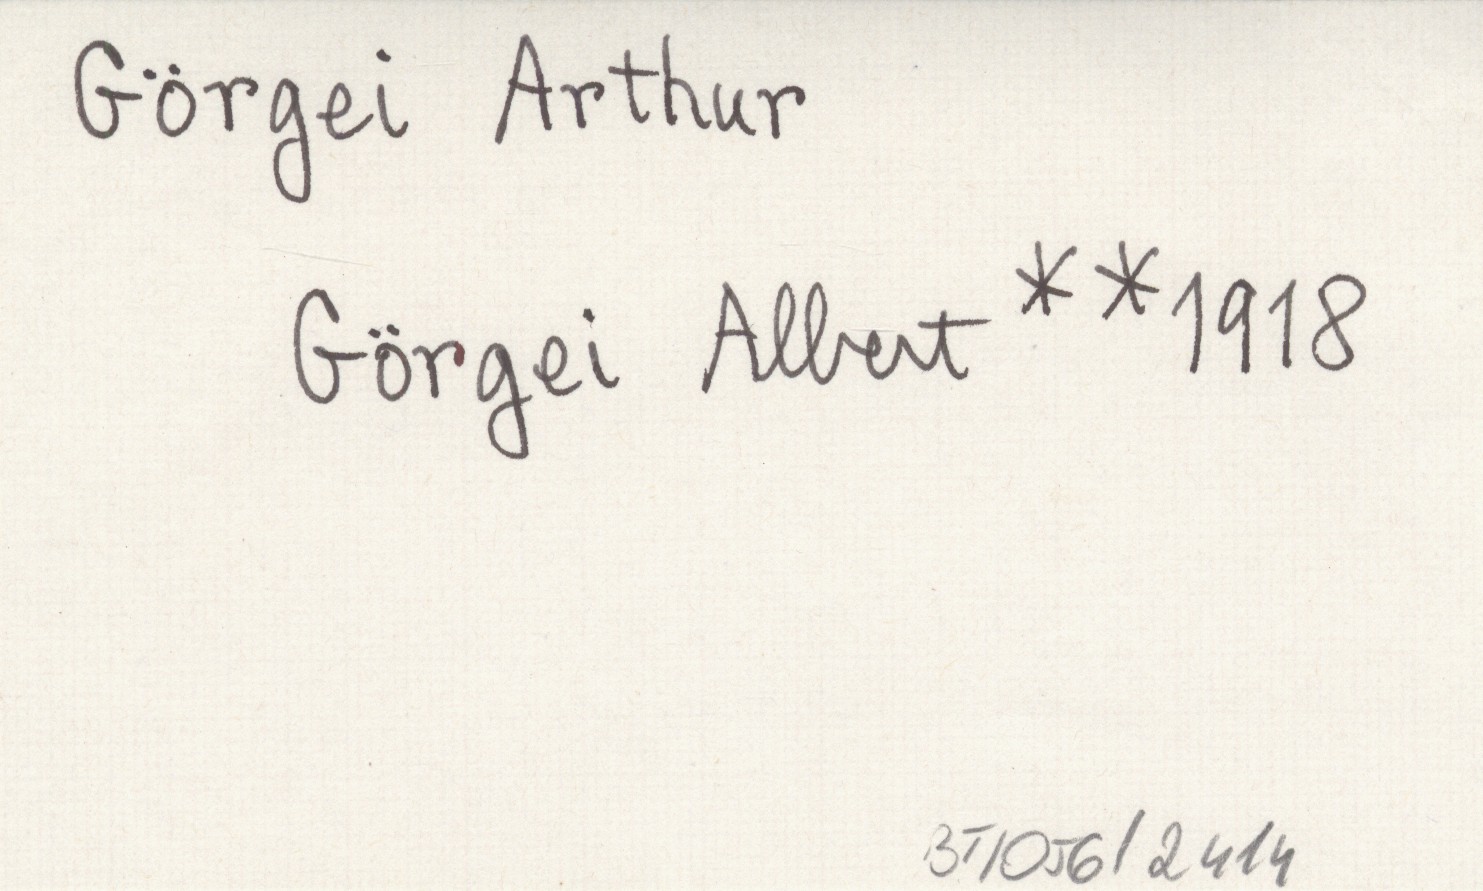 Görgei Arthur
Görgei Albert **1918
BT/056/2414